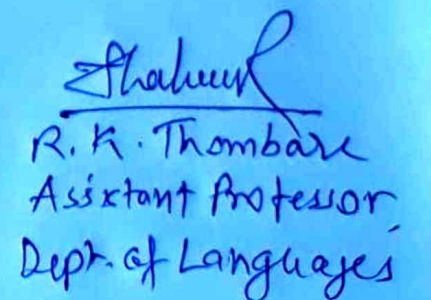 R. K. Thombare
Assistant Professor,
Dept. of Languages